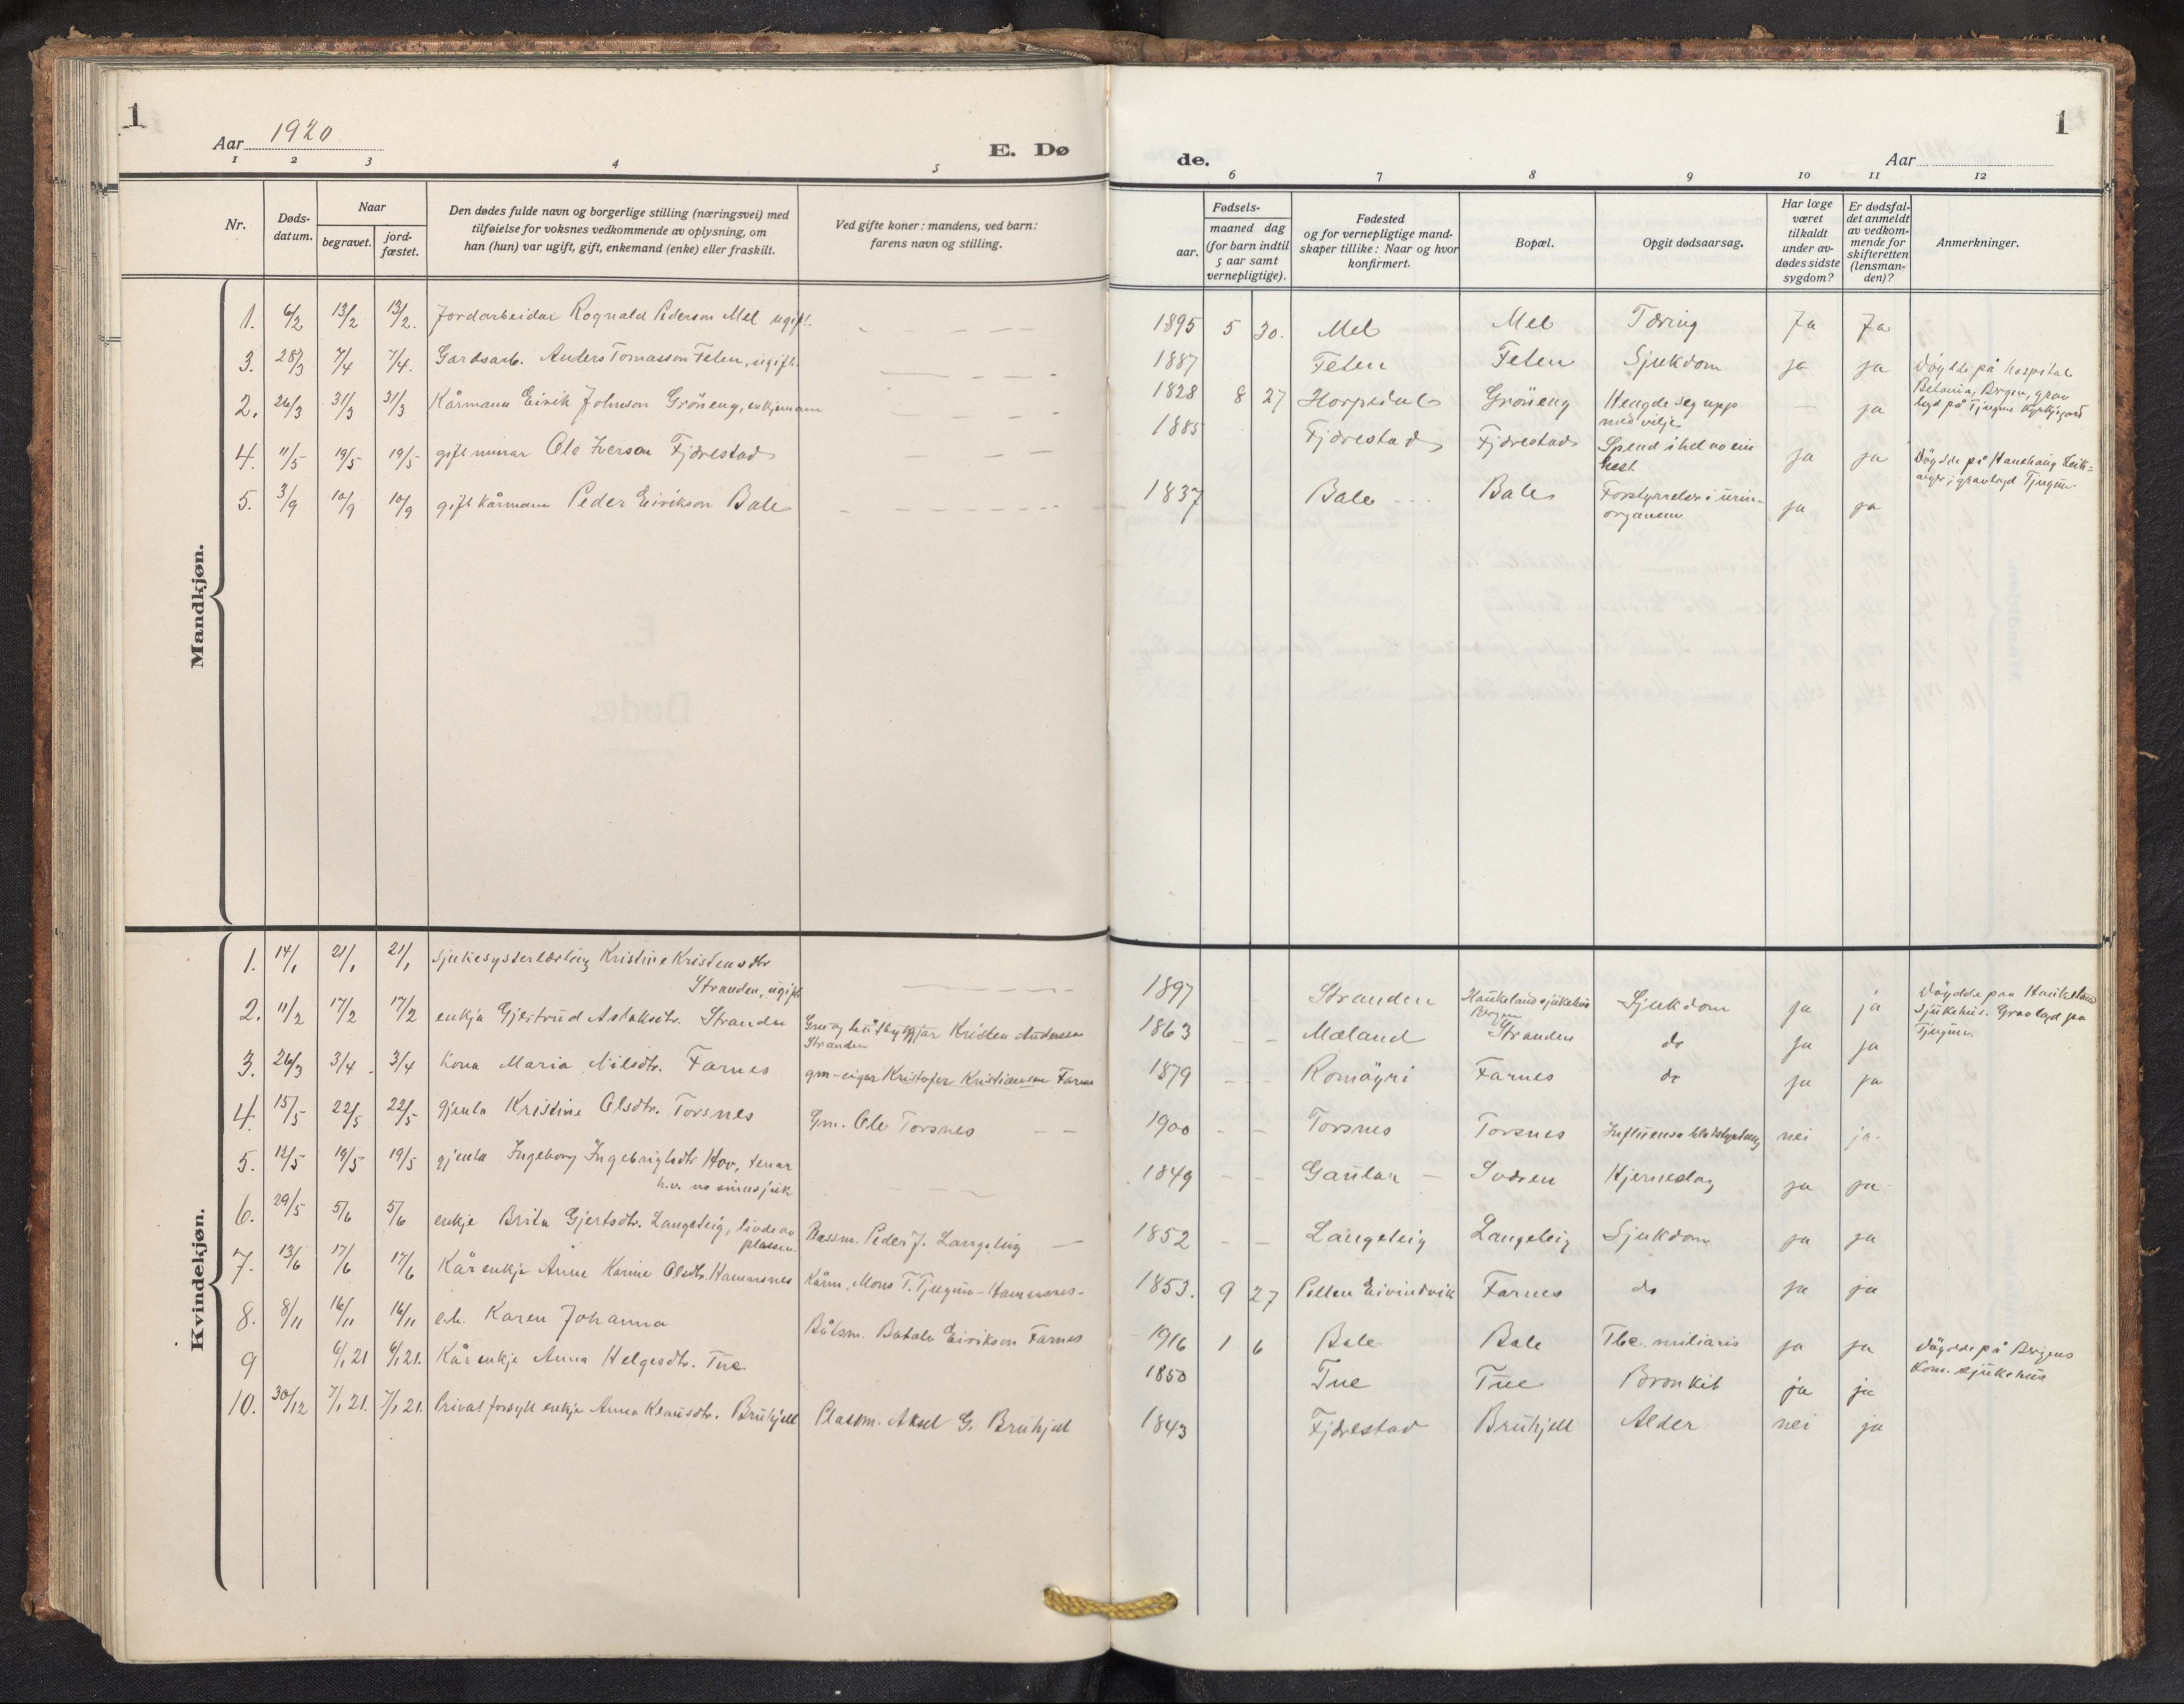 1
Aar 1920
E. Dø
1 2 3 4 5
Nr.
Døds-
datum.
Naar
begravet.
jord-
fæstet.
Den dødes fulde navn og borgerlige stilling (næringsvei) med
tilføielse for voksnes vedkommende av oplysning, om
han (hun) var ugift, gift, enkemand (enke) eller fraskilt.
Ved gifte koner: mandens, ved barn:
farens navn og stilling.
Mandkjøn.
1. 6/2 13/2 13/2. Jordarbeidar Rognald Pederson Mel ugift.
3. 28/3 7/4 7/4. Gardsarb. Anders Tomasson Feten, ugift.
2. 26/3 31/3 31/3 Kårmann Eirik Johnson Gröneng, enkjemann
4. 11/5 19/5 19/5 gift murar Ole Iverson Fjærestad
5. 3/9 10/9 10/9 gift kårmann Peder Eirikson Bale
Kvindekjøn.
1. 14/1 21/1 21/1 Sjukesysterlærling Kristine Kristensdtr
Stranden, ugift
2. 11/2 17/2 17/2 enkja Gjertrud Aslaksdtr. Stranden Gm og husbyggjar Kristen Andersen
Stranden
3. 26/3 3/4 3/4 Kona Maria Nilsdtr. Farnes gm-eigar Kristofer Kristiansen Farnes
4. 15/5 22/5 22/5 gjenta Kristine Olsdtr. Torsnes Gm. Ole Torsnes
5. 12/5 19/5 19/5 gjenta Ingeborg Ingebrigtsdtr Hov, tenar
h.v. no sinnsjuk
6. 29/5 5/6 5/6 enkje Brita Gjertsdtr. Langeteig, livde av
plassen. Plassm. Peder J. Langeteig
7. 13/6 17/6 17/6 Kårenkje Anne Karine Olsdtr. Hamarsnes Kårm. Mons T. Tjugum-Hamarsnes-
8. 8/11 16/11 16/11 e.b. Karen Johanna Båtsm. Botolv Eirikson Farnes
9 6/1 21 6/1 21. Kårenkje Anna Helgesdtr. Tue
10. 30/12 7/1 21. 7/1 21. Privat forsytt enkje Anna Klausdtr. Bruhjell Plassm. Aksel G. Bruhjell
1
de.
Aar
6 7 8 9 10 11 12
Fødsels-
aar.
maaned dag
(for barn indtil
5 aar samt
vernepligtige).
Fødested
og for vernepligtige mand-
skaper tillike: Naar og hvor
konfirmert.
Bopæl.
Opgit dødsaarsag.
Har læge
været
tilkaldt
under av-
dødes sidste
sygdom?
Er dødsfal-
det anmeldt
av vedkom-
mende for
skifteretten
(lensman-
den)?
Anmerkninger.
1895 5 30. Mel Mel Tæring Ja Ja
1887 Feten Feten Sjukdom ja ja Döydde på hospital
Betania, Bergen, grav
lagd på Tjugum kyrkjegard
1828 8 27 Horpedal Gröneng Hengde seg upp
med vilje — ja
1885 Fjærestad Fjærestad Spend i hel av ein
hest ja ja Döydde på Haukhaug Leik-
anger; gravlagd Tjugum.
1837 Bale Bale Forstyrrelse i urin-
organene ja ja
1897 Stranden Haukeland sjukehus
Bergen Sjukdom ja ja Döydde paa Haukeland
Sjukehus. Gravlagd paa
Tjugum.
1863 Mæland Stranden do ja ja
1879 Romöyri Farnes do ja ja
1900 Torsnes Torsnes Influensa blodstyrtning nei ja.
1849 Gaular Sværen Hjerneslag ja ja
1852 Langeteig Langeteig Sjukdom ja ja
1853. 9 27 Pollen Eivindvik Farnes do ja ja
1916 1 6 Bale Bale Tbc. miliaris ja ja Döydde på Bergens
kom. sjukehus
1850 Tue Tue Bronkit ja ja
1843 Fjærestad Bruhjell Alder nei ja